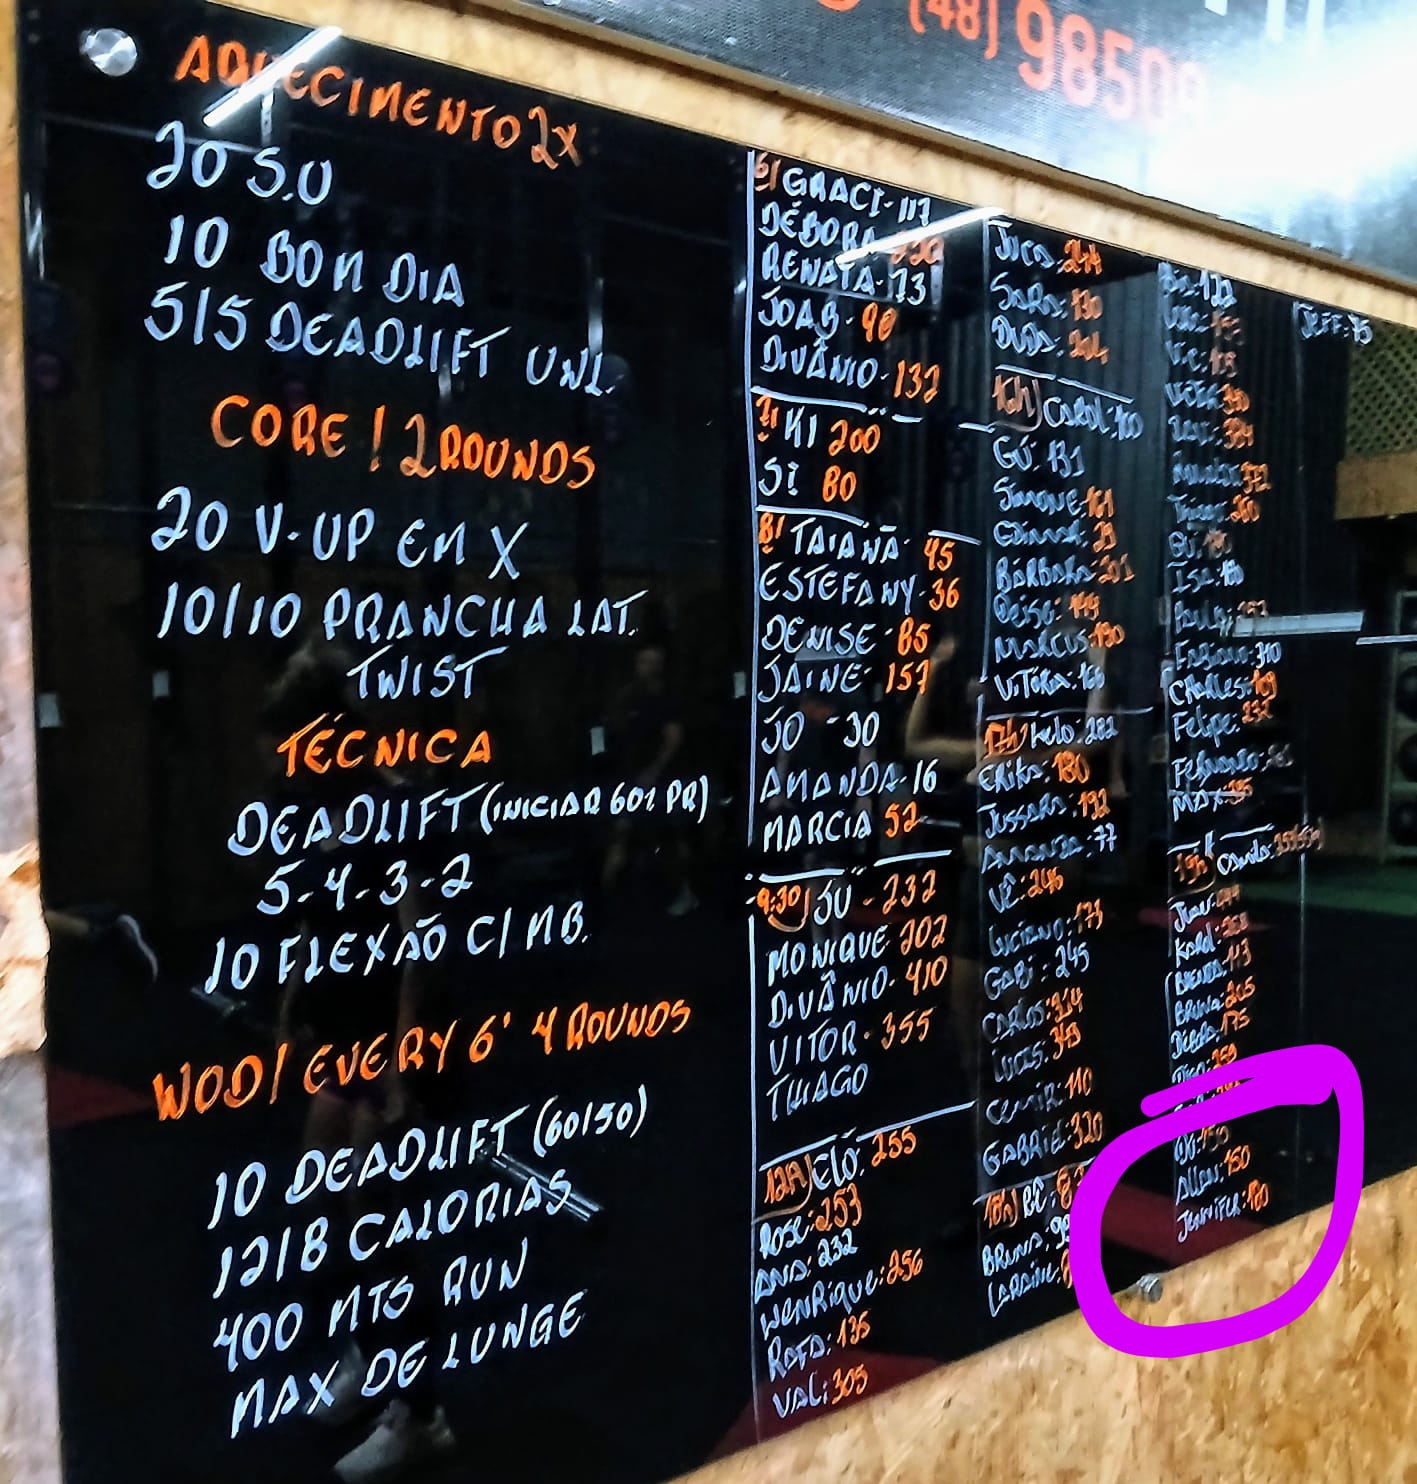 (48) 98509
AQUECIMENTO 2X
20 S.U
10 BOM DIA
5/5 DEADLIFT UNL.
CORE / 2 ROUNDS
20 V-UP EM X
10/10 PRANCHA LAT.
TWIST
TÉCNICA
DEADLIFT (INICIAR 60% PR)
5-4-3-2
10 FLEXÃO C/ MB.
WOD/ EVERY 6' 4 ROUNDS
10 DEADLIFT (60/50)
12/8 CALORIAS
400 MTS RUN
MAX DE LUNGE
6/ GRACI- 117
DÉBORA
RENATA-73
JOAB- 90
DIVÂNIO- 132
7/ KI 200
SI 80
8/ TAIANÃ- 45
ESTEFANY- 36
DENISE- 85
JAINE- 157
JO - 30
AMANDA-16
MARCIA 52
9:30) JÚ - 232
MONIQUE 202
DIVÂNIO- 410
VITOR- 355
THIAGO
12H) CLÔ: 255
ROSE: 253
ANA: 232
HENRIQUE: 256
RAFA: 135
VAL: 305
JUCA:
SARA: 130
DUDA: 204
16H) CAROL: 100
GÚ: 131
SIMONE: 161
BÁRBARA: 201
DEISE:
MARCUS: 130
VITÓRIA:
17H) KELO: 282
ERIKA: 180
JUSSARA: 192
AMANDA: 77
VÊ: 246
LUCIANO: 173
GABI: 245
CARLOS:
LUCAS: 343
110
GABRIEL: 320
18H) BÊ:
BRUNA:
BIA: 122
ISA:
FABIANO: 310
CHARLES: 109
FELIPE: 232
FERNANDO:
MAX:
19H) CAMILA:
JUAN:
KAROL:
BRENDA: 113
BRUNA: 265
DÉBORA: 175
ALLAN: 150
JENNIFER: 180
JEFF: 75